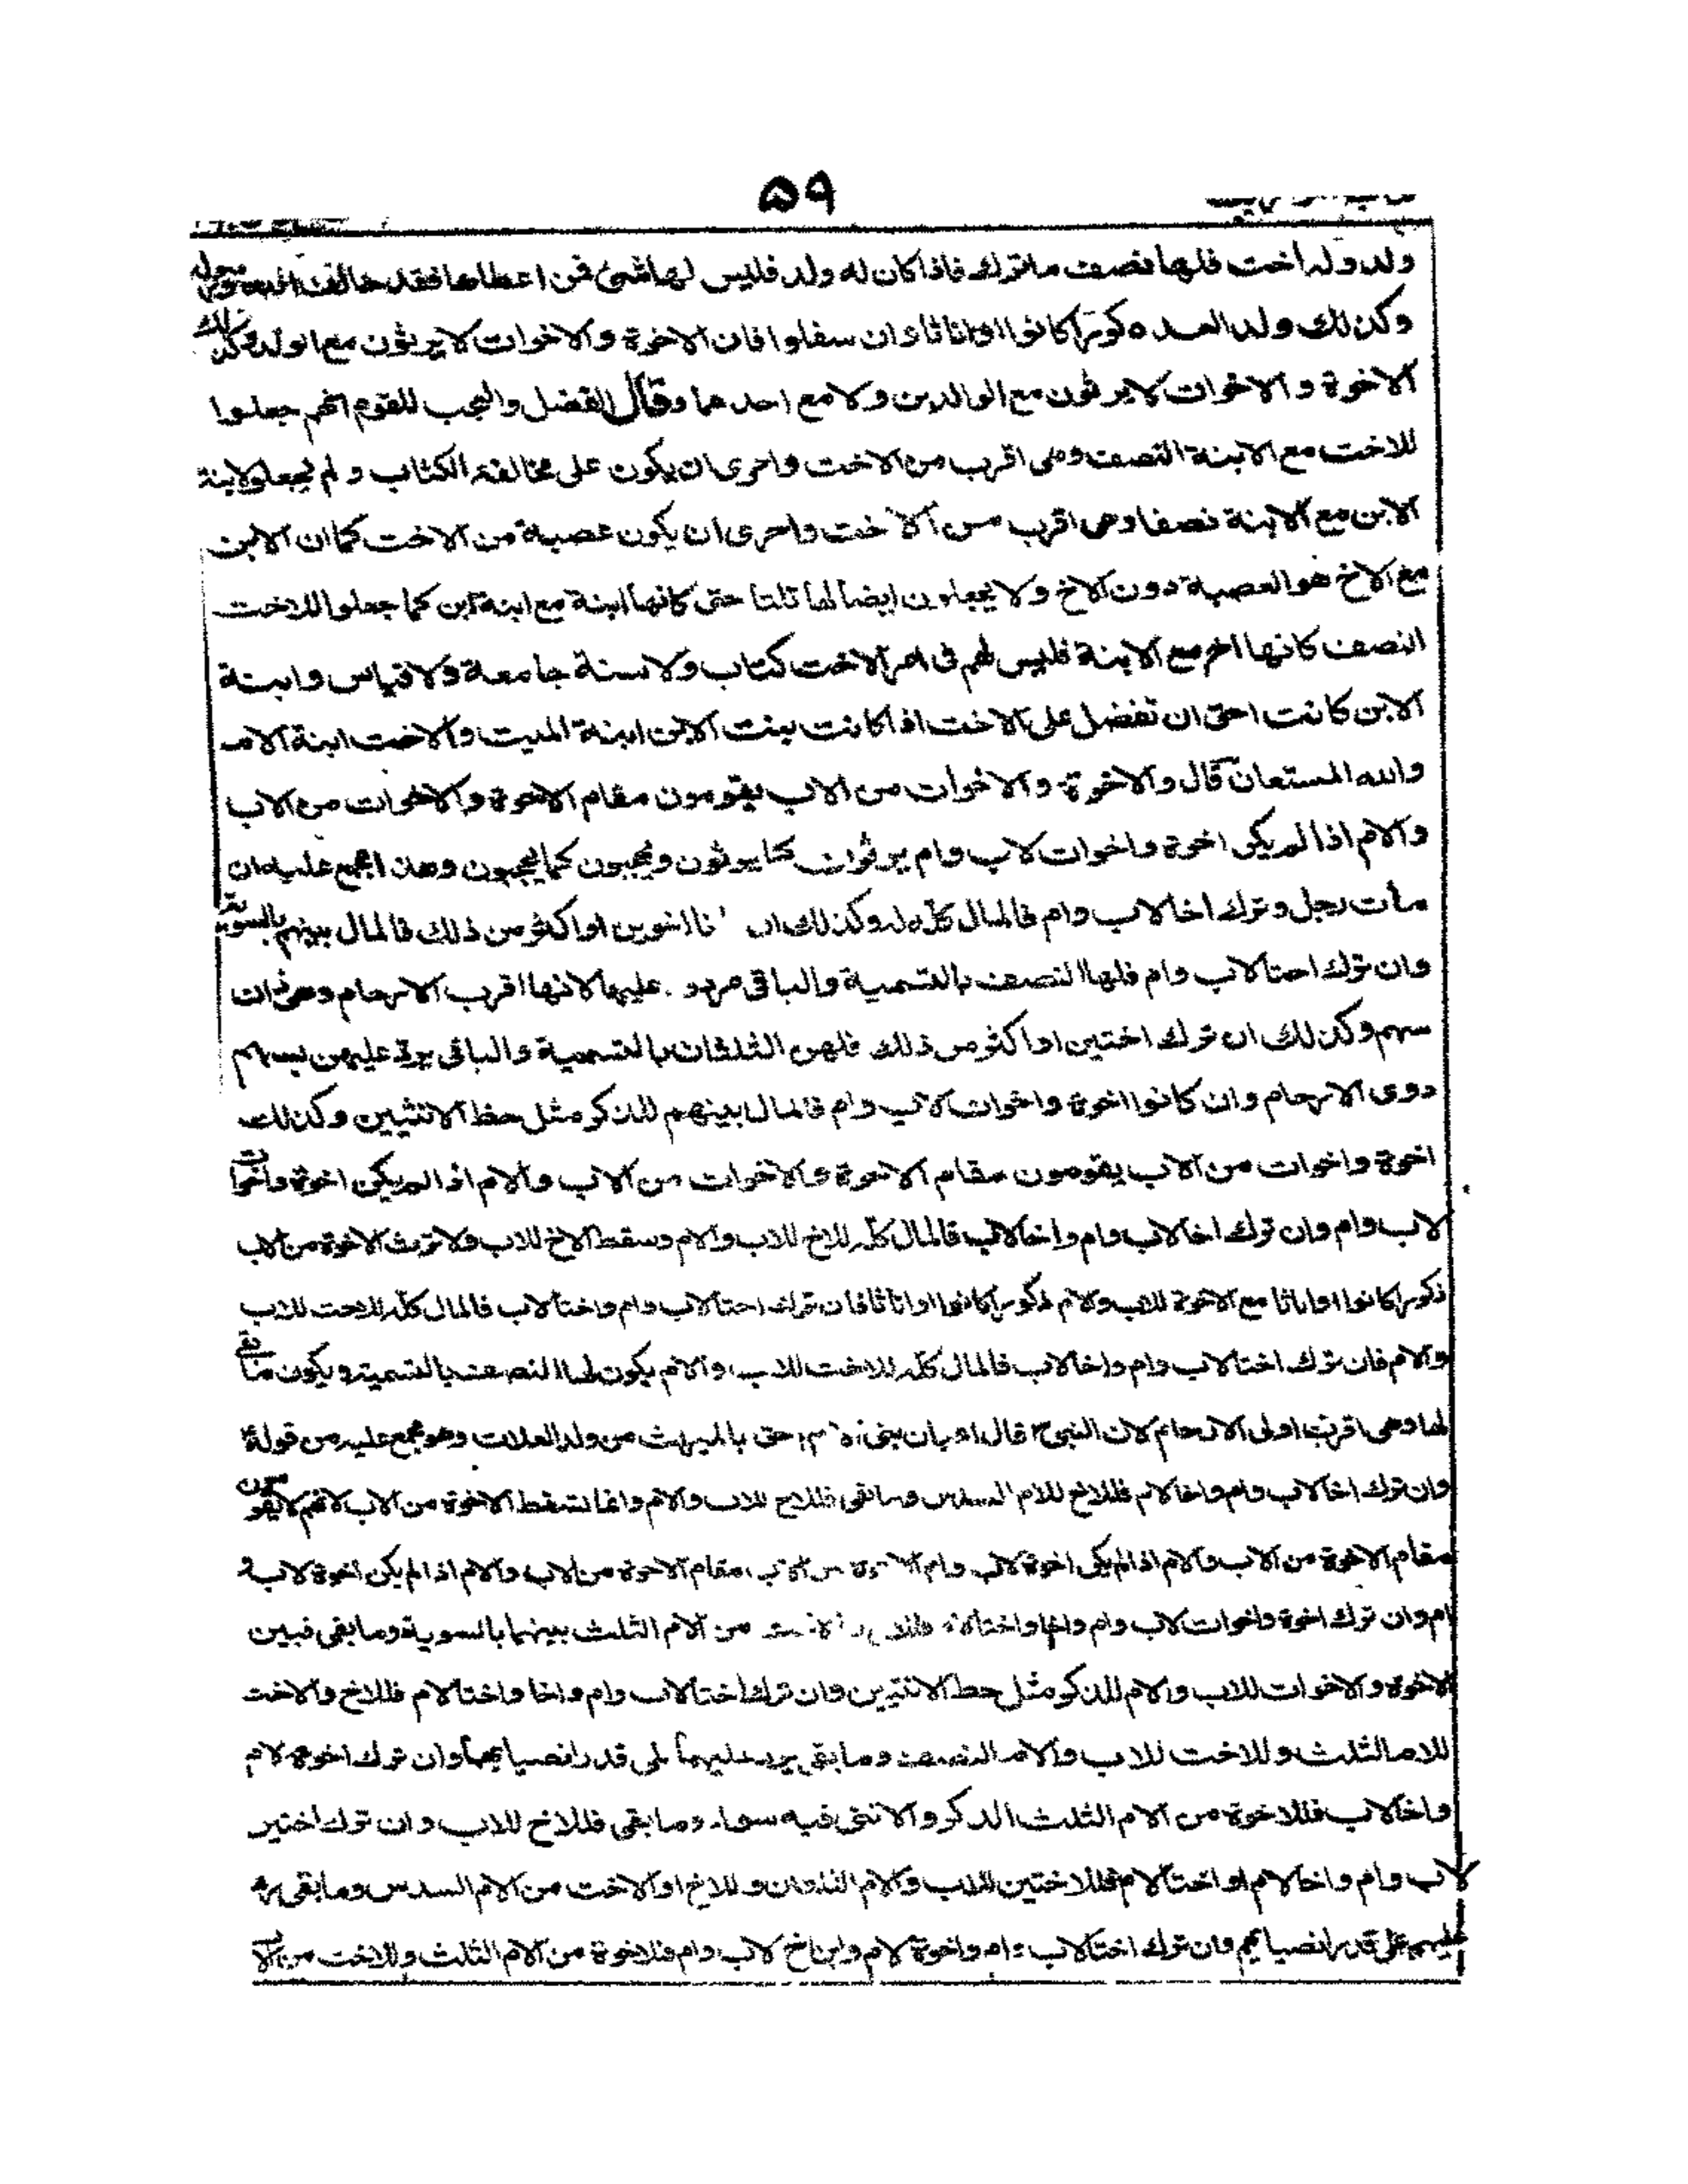 ۵۹
ولد وله اخت فلها نصف ما ترك فاذا كان له ولد فليس لها شئ فمن اعطاها فقد خالف الله ورسوله
وكذلك ولد الولد ذكورا كانوا او اناثا وان سفلوا فان الاخوة والاخوات لا يرثون مع الولد وكذلك
الاخوة والاخوات لا يرثون مع الوالدين ولا مع احدهما وقال الفضل والعجب للقوم انهم جعلوا
للاخت مع الابنة النصف وهى اقرب من الاخت واحرى ان يكون على مخالفة الكتاب ولم يجعلوا لابنة
الابن مع الابنة نصفا وهى اقرب من الاخت واحرى ان يكون عصبة من الاخت كما ان الابن
مع الاخ هو العصبة دون الاخ ولا يجعلون ايضا لها ثلثا حتى كانها ابنة مع ابنة ابن كما جعلوا للاخت
النصف كانها اخ مع الابنة فليس لهم فى امر الاخت كتاب ولا سنة جامعة ولا قياس وابنة
الابن كانت احق ان تفضل على الاخت اذا كانت بنت الابن ابنة الميت والاخت ابنة الام
والله المستعان قال والاخوة والاخوات من الاب يقومون مقام الاخوة والاخوات من الاب
والام اذا لم يكن اخوة واخوات لاب وام يرثون كما يرثون ويحجبون كما يحجبون وهذا مجمع عليه ان
مات رجل وترك اخا لاب وام فالمال كله له وكذلك ان كانا اخوين او اكثر من ذلك فالمال بينهم بالسوية
وان ترك اختا لاب وام فلها النصف بالتسمية والباقى مردود عليها لانها اقرب الارحام وهى ذات
سهم وكذلك ان ترك اختين او اكثر من ذلك فلهن الثلثان بالتسمية والباقى يرد عليهن بسهم
ذوى الارحام وان كانوا اخوة واخوات لاب وام فالمال بينهم للذكر مثل حظ الانثيين وكذلك
اخوة واخوات من الاب يقومون مقام الاخوة والاخوات من الاب والام اذا لم يكن اخوة واخوات
لاب وام وان ترك اخا لاب وام واخا لاب فالمال كله للاخ للاب والام وسقط الاخ للاب ولا ترث الاخوة من الاب
ذكورا كانوا او اناثا مع الاخوة للاب والام ذكورا كانوا او اناثا فان ترك اختا لاب وام واختا لاب فالمال كله للاخت للاب
والام فان ترك اختا لاب وام واخا لاب فالمال كله للاخت للاب والام يكون لها النصف بالتسمية ويكون ما بقى
لها وهى اقرب اولى الارحام لان النبى قال اعيان بنى الام احق بالميراث من ولد العلات وهو مجمع عليه من قوله
وان ترك اخا لاب وام واخا لام فللاخ للام السدس وما بقى فللاخ للاب والام وانما تسقط الاخوة من الاب لانهم لا يقومون
مقام الاخوة من الاب والام اذا لم يكن اخوة لاب وام مقام الاخوة من الاب والام اذا لم يكن اخوة لاب و
ام وان ترك اخوة واخوات لاب وام واخا واختا لام من الام الثلث بينهما بالسوية وما بقى فبين
الاخوة والاخوات للاب والام للذكر مثل حظ الانثيين وان ترك اختا لاب وام واخا واختا لام فللاخ والاخت
للام الثلث وللاخت للاب والام النصف وما بقى يرد عليهما على قدر انصبائهما وان ترك اخوة لام
واخا لاب فللاخوة من الام الثلث الذكر والانثى فيه سواء وما بقى فللاخ للاب وان ترك اختين
لاب وام واخا لام او اختا لام فللاختين للاب والام الثلثان وللاخ او الاخت من الام السدس وما بقى يرد
عليهم على قدر انصبائهم وان ترك اختا لاب وام واخوة لام وابن اخ لاب وام فللاخوة من الام الثلث وللاخت من الاب